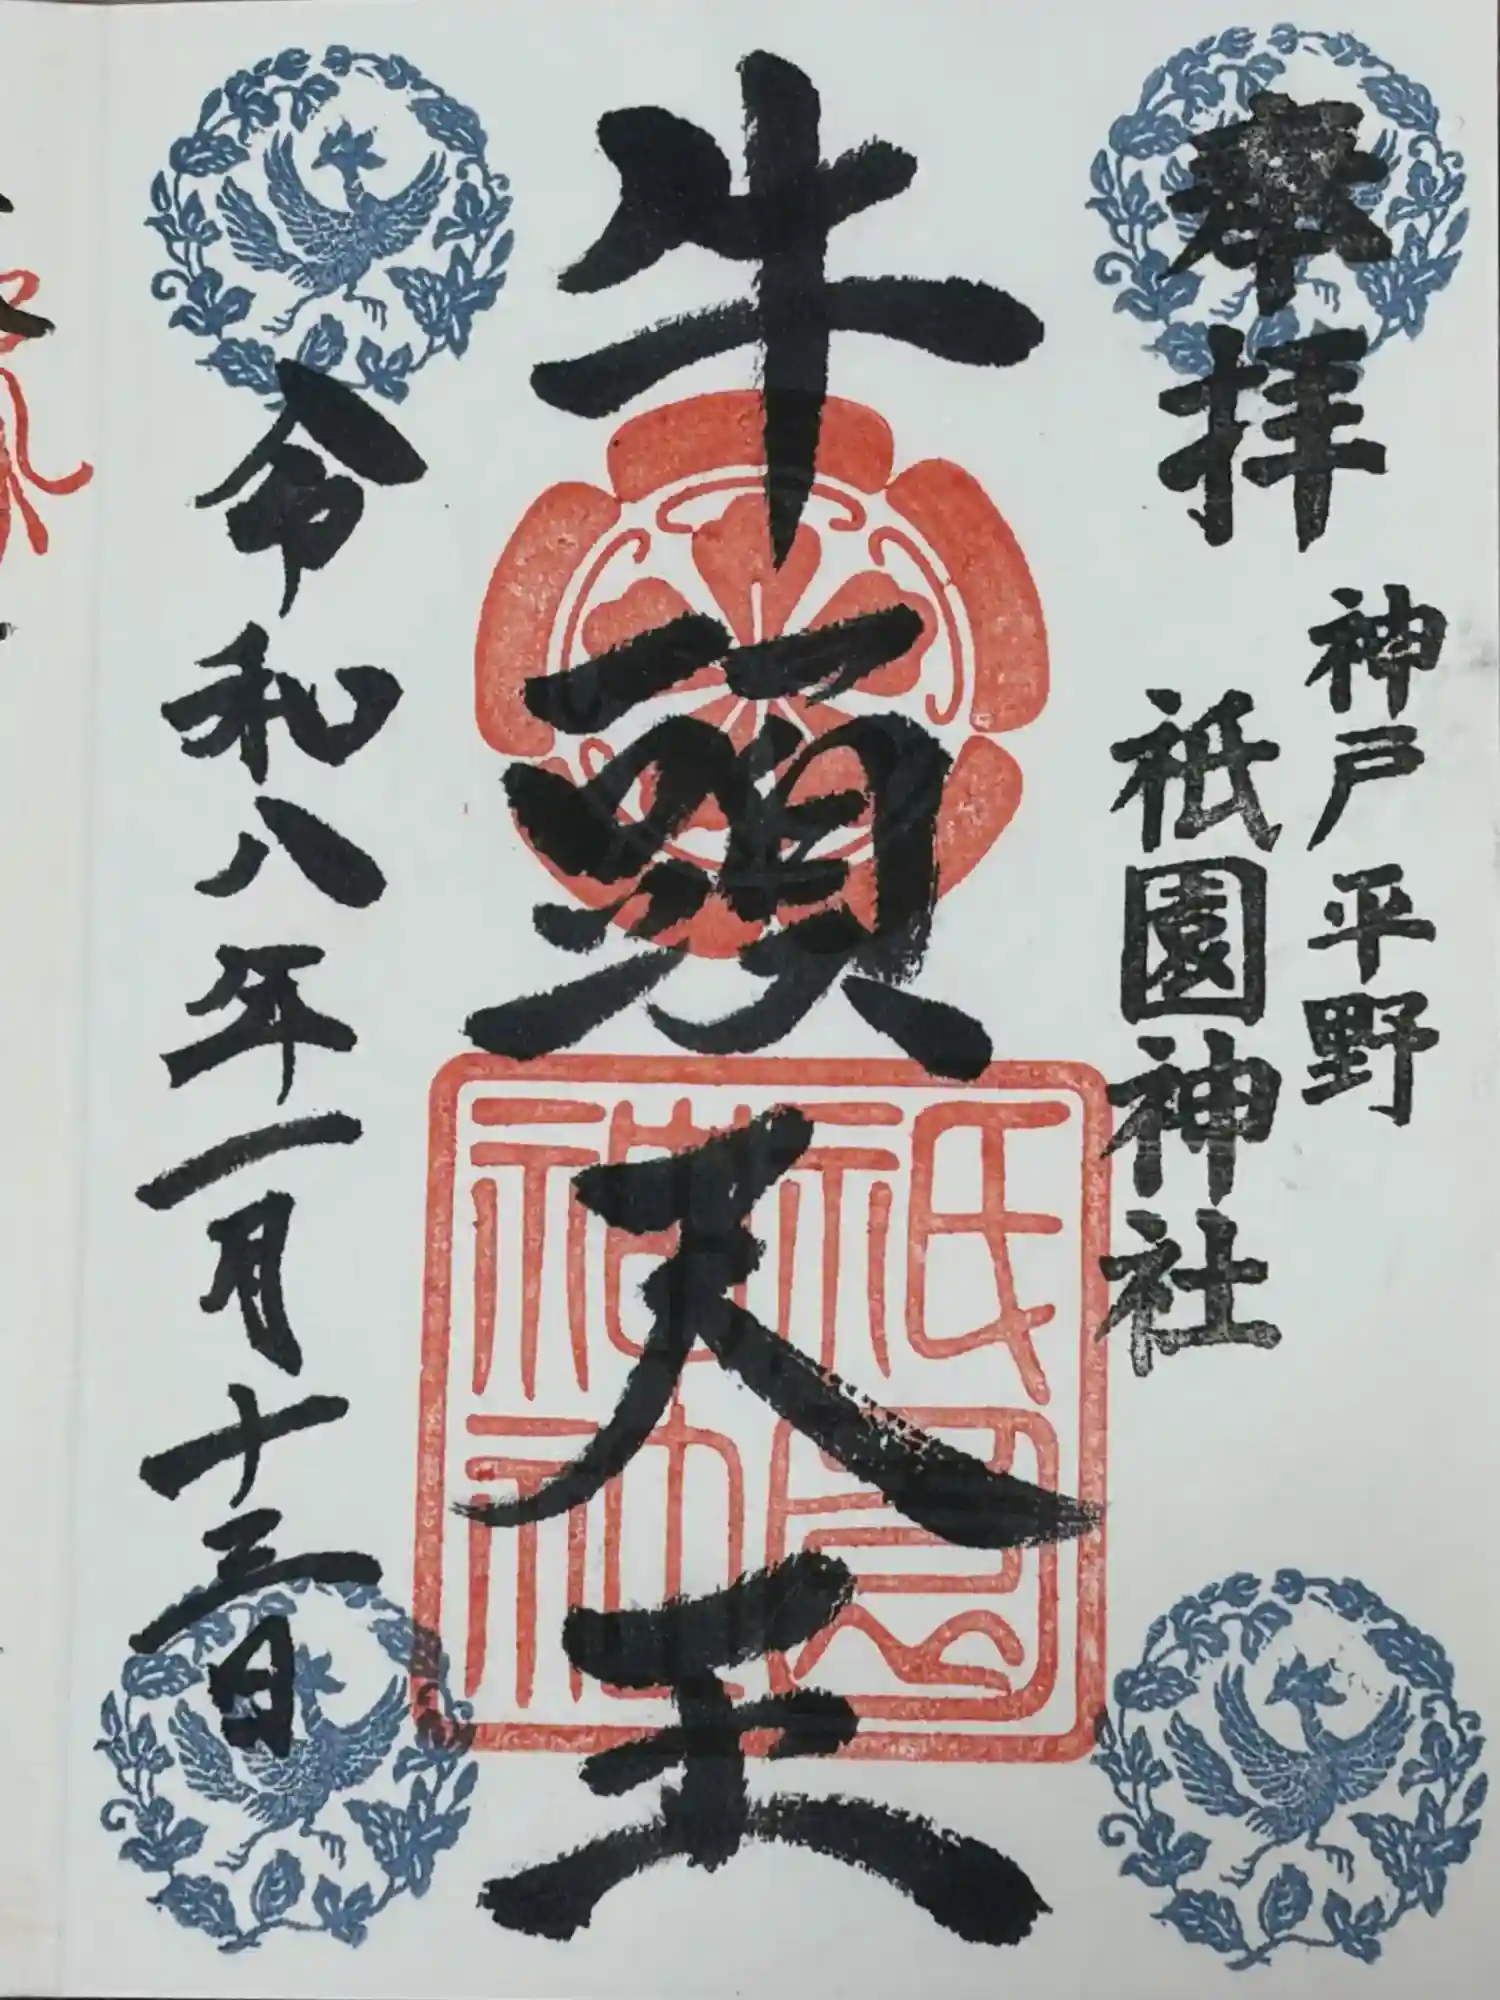 奉拝
神戸平野
祇園神社
牛頭天王
祇園神社
令和八年一月十三日